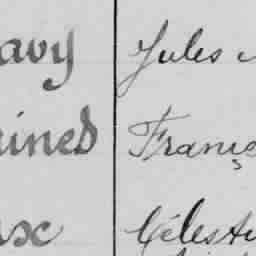 avy Jules
ined Franç
Célest